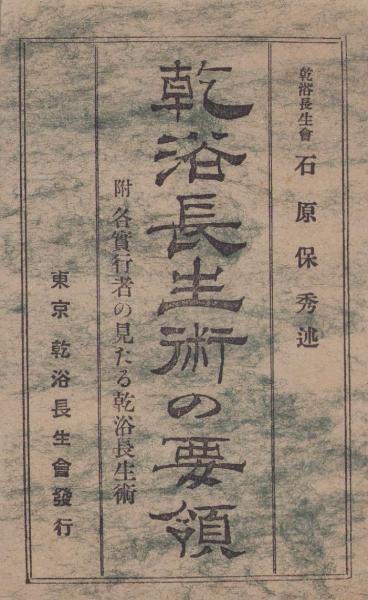 乾浴長生會 石原保秀述
乾浴長生術の要領
附 各實行者の見たる乾浴長生術
東京 乾浴長生會發行